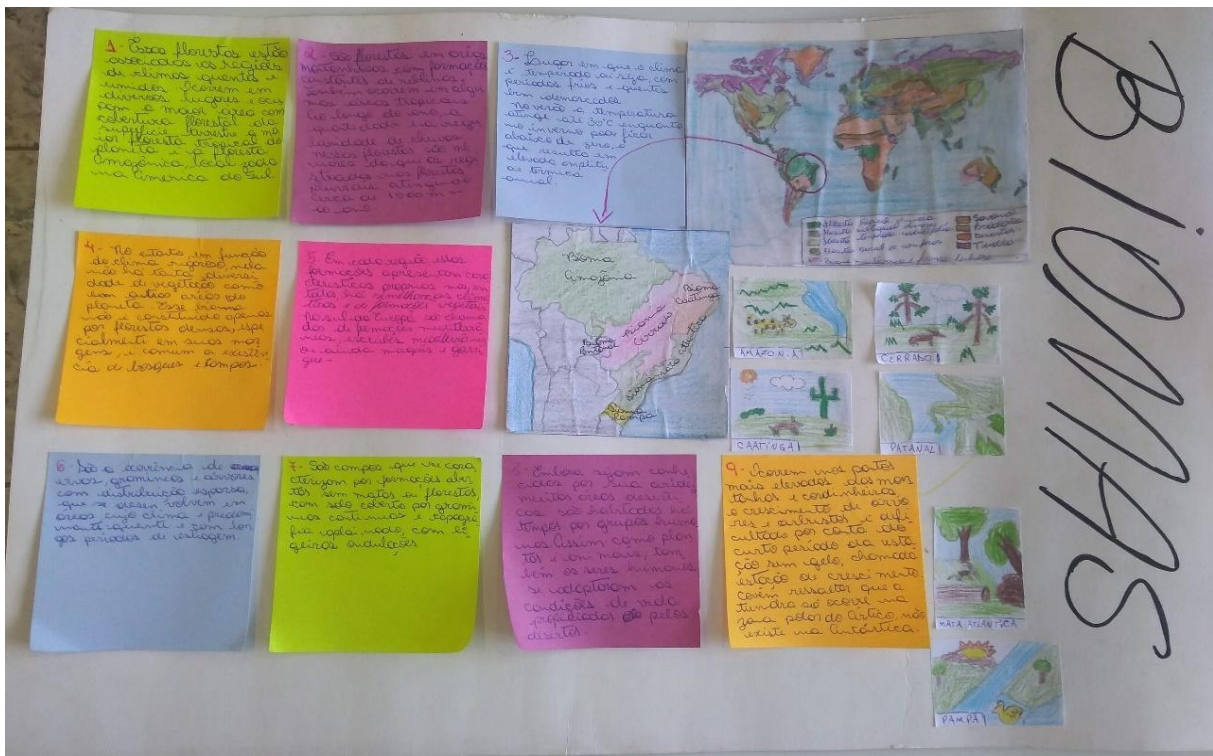 BIOMAS
1- Essas florestas estão
associadas as regiões
de climas quentes e
umidos. Ocorrem em
diversos lugares e ocu
pam a maior área com
cobertura florestal da
superfície terrestre a ma
ior floresta tropical do
planeta e a floresta
Amazônica local zada
na America do Sul
2- São florestas em áreas
montanhosas com formações
constantes de neblinas,
também ocorrem em algu
mas áreas tropicais
Ao longo do ano, a
quantidade e a regu
laridade de chuvas
nessas florestas são
do que as regis
tradas nas florestas
pluviais atingindo
cerca de 1000 m
ao ano
3- Lugar em que o clima
é temperado ou seja, com
períodos frios e quentes
bem demarcados
no verão a temperatura
atinge até 30°C enquanto
no inverno pode ficar
abaixo de zero, o
que resulta em
elevada amplitu
de térmica
anual.
Savana
Pradarias
Desertos
Tundra
4- No etanto, em função
do clima rigoroso, nela
não ha tanta diversi
dade de vegetação como
em outras areas do
planeta. Esse bioma
não e constituido apenas
por florestas densas, espe
cialmente em suas mar
gens, é comum a existên
cia de bosques e campos.
5- Em cada região essas
formações apresentam cara
cteristicas proprias mas, en
tato, há semelhanças climá
ticas e as formações vegetais
No sul da Europa são chama
dos de formações mediterrâ
neas,
ou ainda maquis e garri
gue-
Bioma
Amazônia
Bioma
Caatinga
Bioma
Cerrado
Bioma
Pantanal
Bioma Mata Atlântica
Bioma
Pampa
AMAZON.A
CERRADO
CAATINGA
PATANAL
6- São a ocorrência de
ervas, gramineas e arvores
com distribuição esparsa,
que se desen volvem em
areas cujo clima e predom
nante quente e com lon
gos periodos de estiagem.
7- São campos que se cara
cterizam por formações aber
tas sem matas ou florestas,
com solo coberto por grami
neas continuas e topogra
fia aplainada, com li
geiras ondulações
8- Enbora sejam conhe
cidos por sua aridez,
muitas areas deserti
cas são habitadas há
tempos por grupos huma
nos Assim como plan
tas e ani mais, tam
bem os seres humanos
se adaptaram as
condições de vida
propiciadas pelos
desertos.
9- Ocorrem nos pontos
mais elevados das mon
tanhas e cordinheiras,
o crescimento de arvo
res e arbustos é difi
cultado por conta do
curto período da esta
ção sem gelo, chamada
estação de crescimento.
covém ressaltar que a
tundra só ocorre na
zona polar do Artico, não
existe na Antártica.
MATA ATLÂNTICA
PAMPA